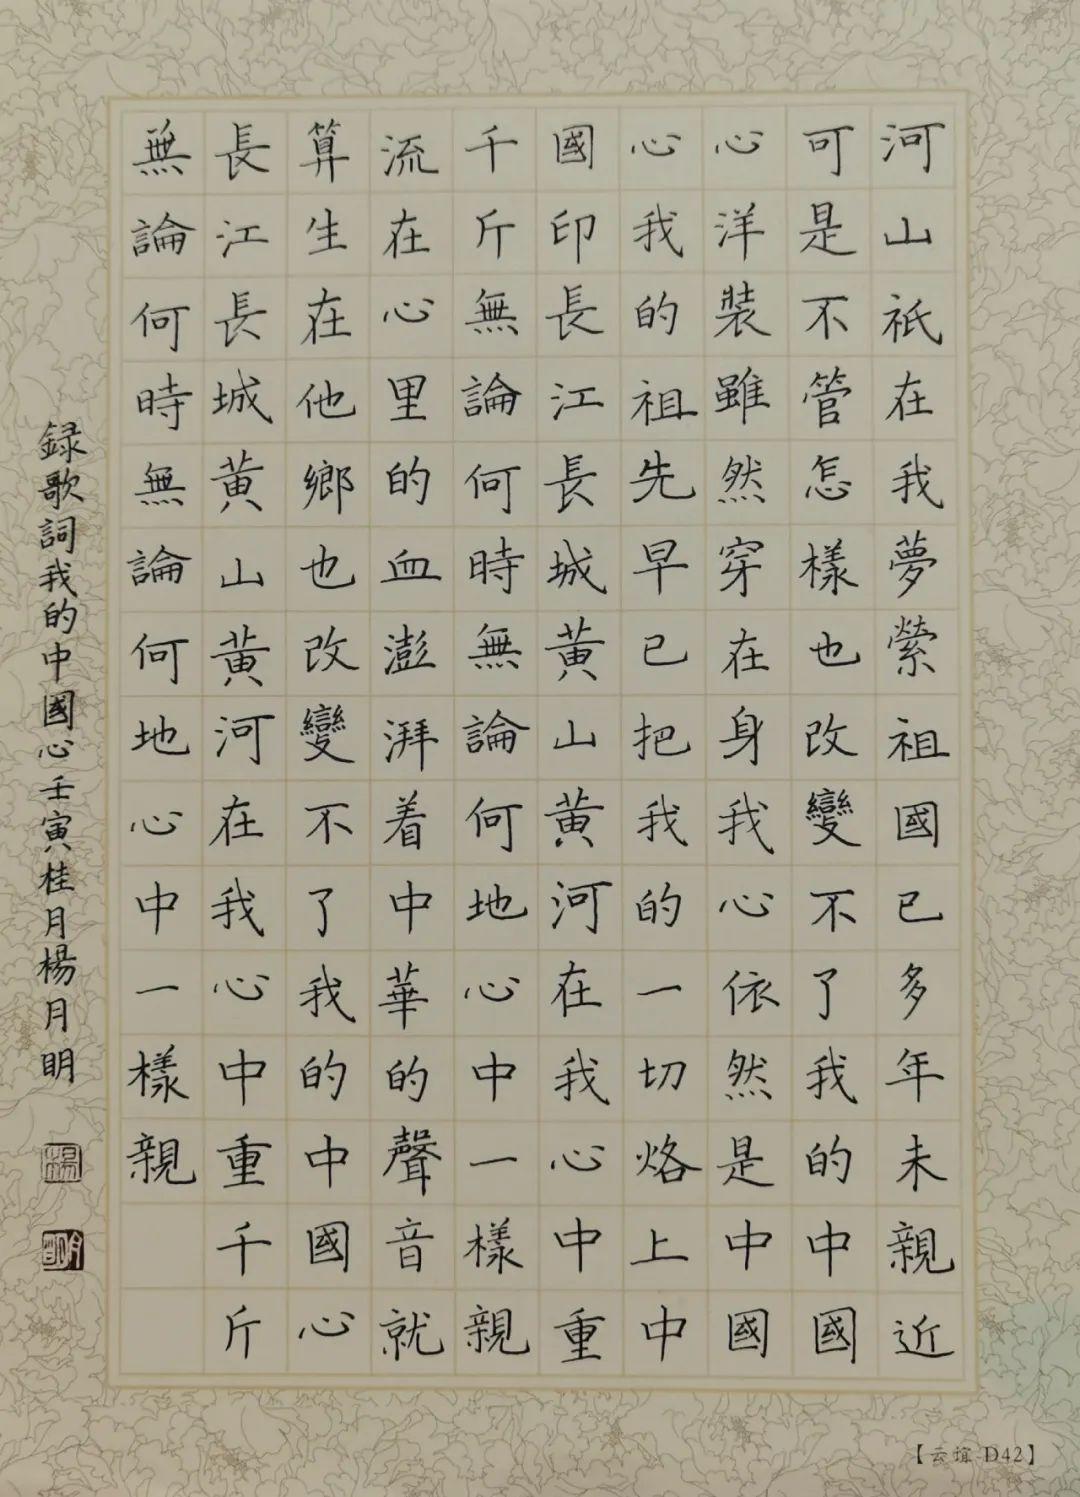 河山祇在我夢縈祖國已多年未親近
可是不管怎樣也改變不了我的中國
心洋裝雖然穿在身我心依然是中國
心我的祖先早已把我的一切烙上中
國印長江長城黃山黃河在我心中重
千斤無論何時無論何地心中一樣親
流在心里的血澎湃着中華的聲音就
算生在他鄉也改變不了我的中國心
長江長城黃山黃河在我心中重千斤
無論何時無論何地心中一樣親
録歌詞我的中國心壬寅桂月楊月明
楊
明
【云誼 D42】